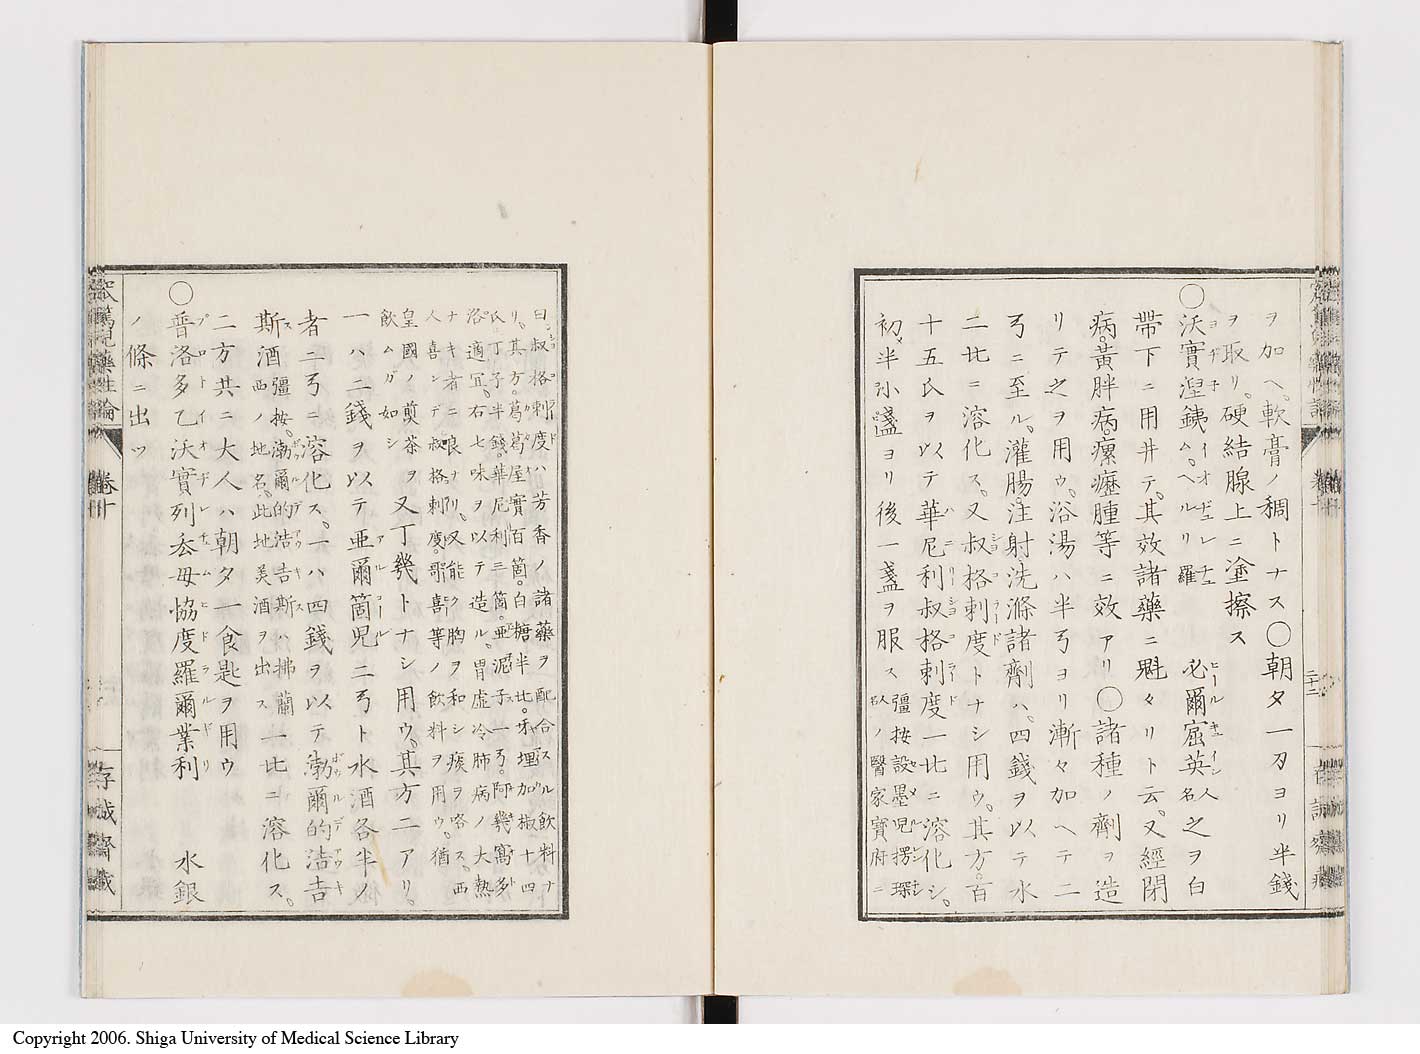 ヲ加ヘ、軟膏ノ稠トナス〇朝夕一刃ヨリ半錢
ヲ取リ。硬結腺上ニ塗擦ス
〇沃實涅銕ヨヂーイオヂュレチュム。ヘルリ羅 必爾窟英ヒールキュイン人名之ヲ白
帶下ニ用井テ。其效諸藥ニ魁タリト云。又經閉
病。黃胖病。瘰癧腫等ニ效アリ 〇諸種ノ劑ヲ造
リテ之ヲ用ウ。浴湯ハ半弓ヨリ漸々加ヘテ二
弓ニ至ル。灌腸。注射洗滌諸劑ハ。四錢ヲ以テ水
二比ニ溶化ス。又叔格刺度トナシ用ウ。其方。百
十五氏ヲ以テ華尼利叔格刺度一比ニ溶化シ。
初メ半小盞ヨリ後一盞ヲ服ス彊按設墨児撈琛
名人ノ醫家寶府ニ
曰。叔格刺度ハ芳香ノ諸藥ヲ配合スル飲料ナ
リ。其方。葛葛屋實百箇。白糖半比。牙埋加椒十四
氏。丁子半錢。華尼利三箇。亜泥子一弓。阿幾寫多
洛適冝。右七味ヲ以テ造ル。胃虛冷肺病ノ大熱
ナキ者ニ良ナリ。又能ク胸ヲ和シ痰ヲ咯ス。西
人喜ンデ叔格刺度。哥喜等ノ飲料ヲ用ウ。猶
皇國ノ煎茶ヲ
飲ムガ如シ 又丁幾トナシ用ウ。其方二アリ。
一ハ二錢ヲ以テ亜爾箇児アルコール二弓ト水酒各半ノ
者二弓ニ溶化ス。一ハ四錢ヲ以テ渤爾的浩吉
斯酒彊按。渤爾的浩吉斯ハ拂蘭
西ノ地名。此地美酒ヲ出ス一比ニ溶化ス。
二方共ニ大人ハ朝夕一食匙ヲ用ウ
〇普洛多乙沃實列丕母協度羅爾業利 水銀
ノ條ニ出ツ
窊篤児藥性論 卷十
存誠齋藏